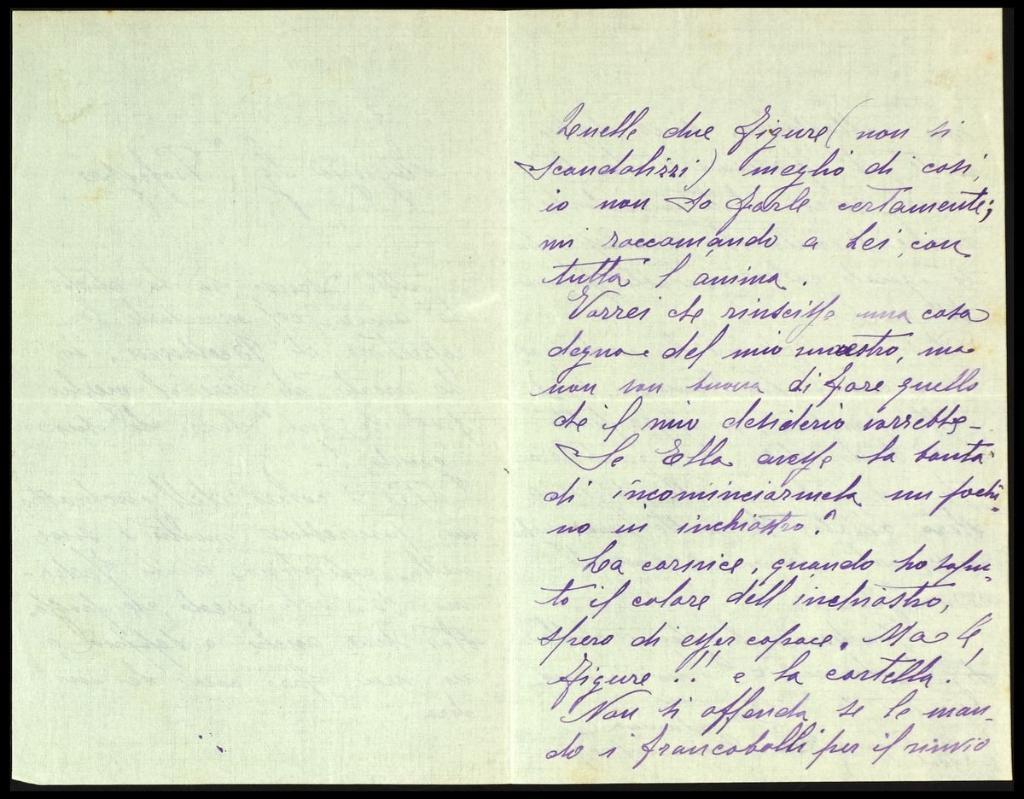 Quelle due figure (non si
scandalizzi) meglio di così,
io non so farle certamente;
mi raccomando a Lei, con
tutta l'anima.
Vorrei che riuscisse una cosa
degna del mio maestro, ma
non son buona di fare quello
che il mio desiderio vorrebbe -
Se Ella avesse la bontà
di incominciarmela un pochi
no in inchiostro?
La cornice, quando ho sapu-
to il colore dell'inchiostro,
spero di esser capace. Ma le
figure!!! e la cartella!
Non si offenda se le man-
do i francobolli per il rinvio